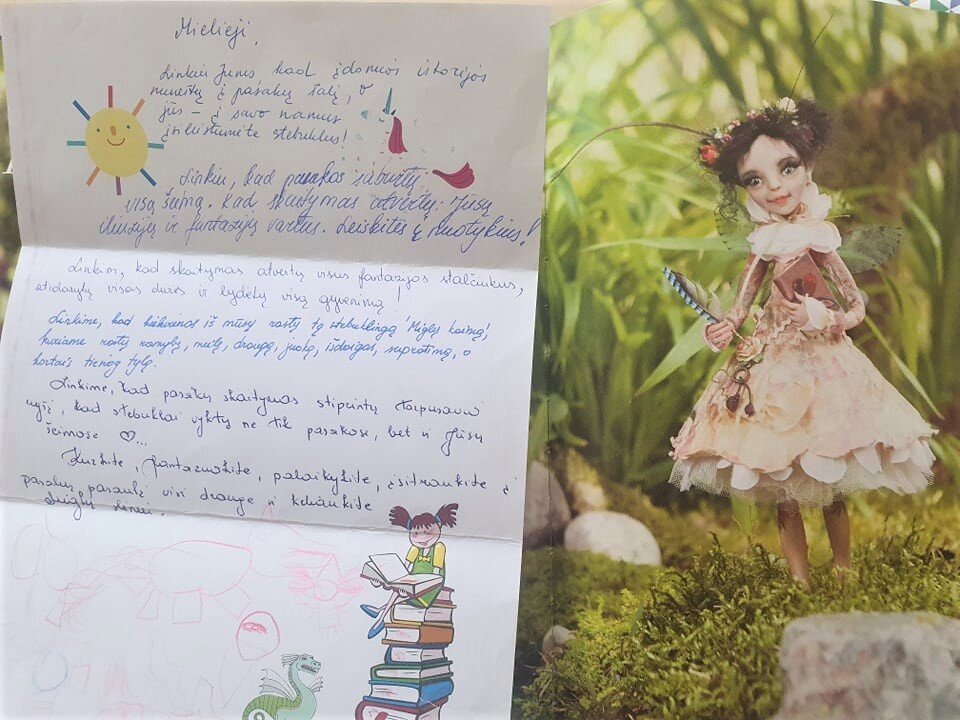 Mielieji,
Linkiu Jums, kad įdomios istorijos
nuneštų į pasakų šalį, o
jūs – į savo namus
įsileistumėte stebuklus!
Linkiu, kad pasakos suburtų
visą šeimą. Kad skaitymas atvertų Jūsų
iliuzijų ir fantazijų vartus. Leiskitės į nuotykius!
Linkim, kad skaitymas atvertų visus fantazijos stalčiukus,
atidarytų visas duris ir lydėtų visą gyvenimą!
Linkime, kad kiekvienas iš mūsų rastų tą stebuklingą Miglės kainą,
kuriame rastų ramybę, meilę, draugą, juoką, išdaigas, supratimą, o
kartais tiesiog tylą.
Linkime, kad pasakų skaitymas stiprintų tarpusavio
ryšį, kad stebuklai vyktų ne tik pasakose, bet ir Jūsų
šeimose ♡...
Kurkite, fantazuokite, palaikykite, įsitraukite į
pasakų pasaulį visi drauge ir keliaukite